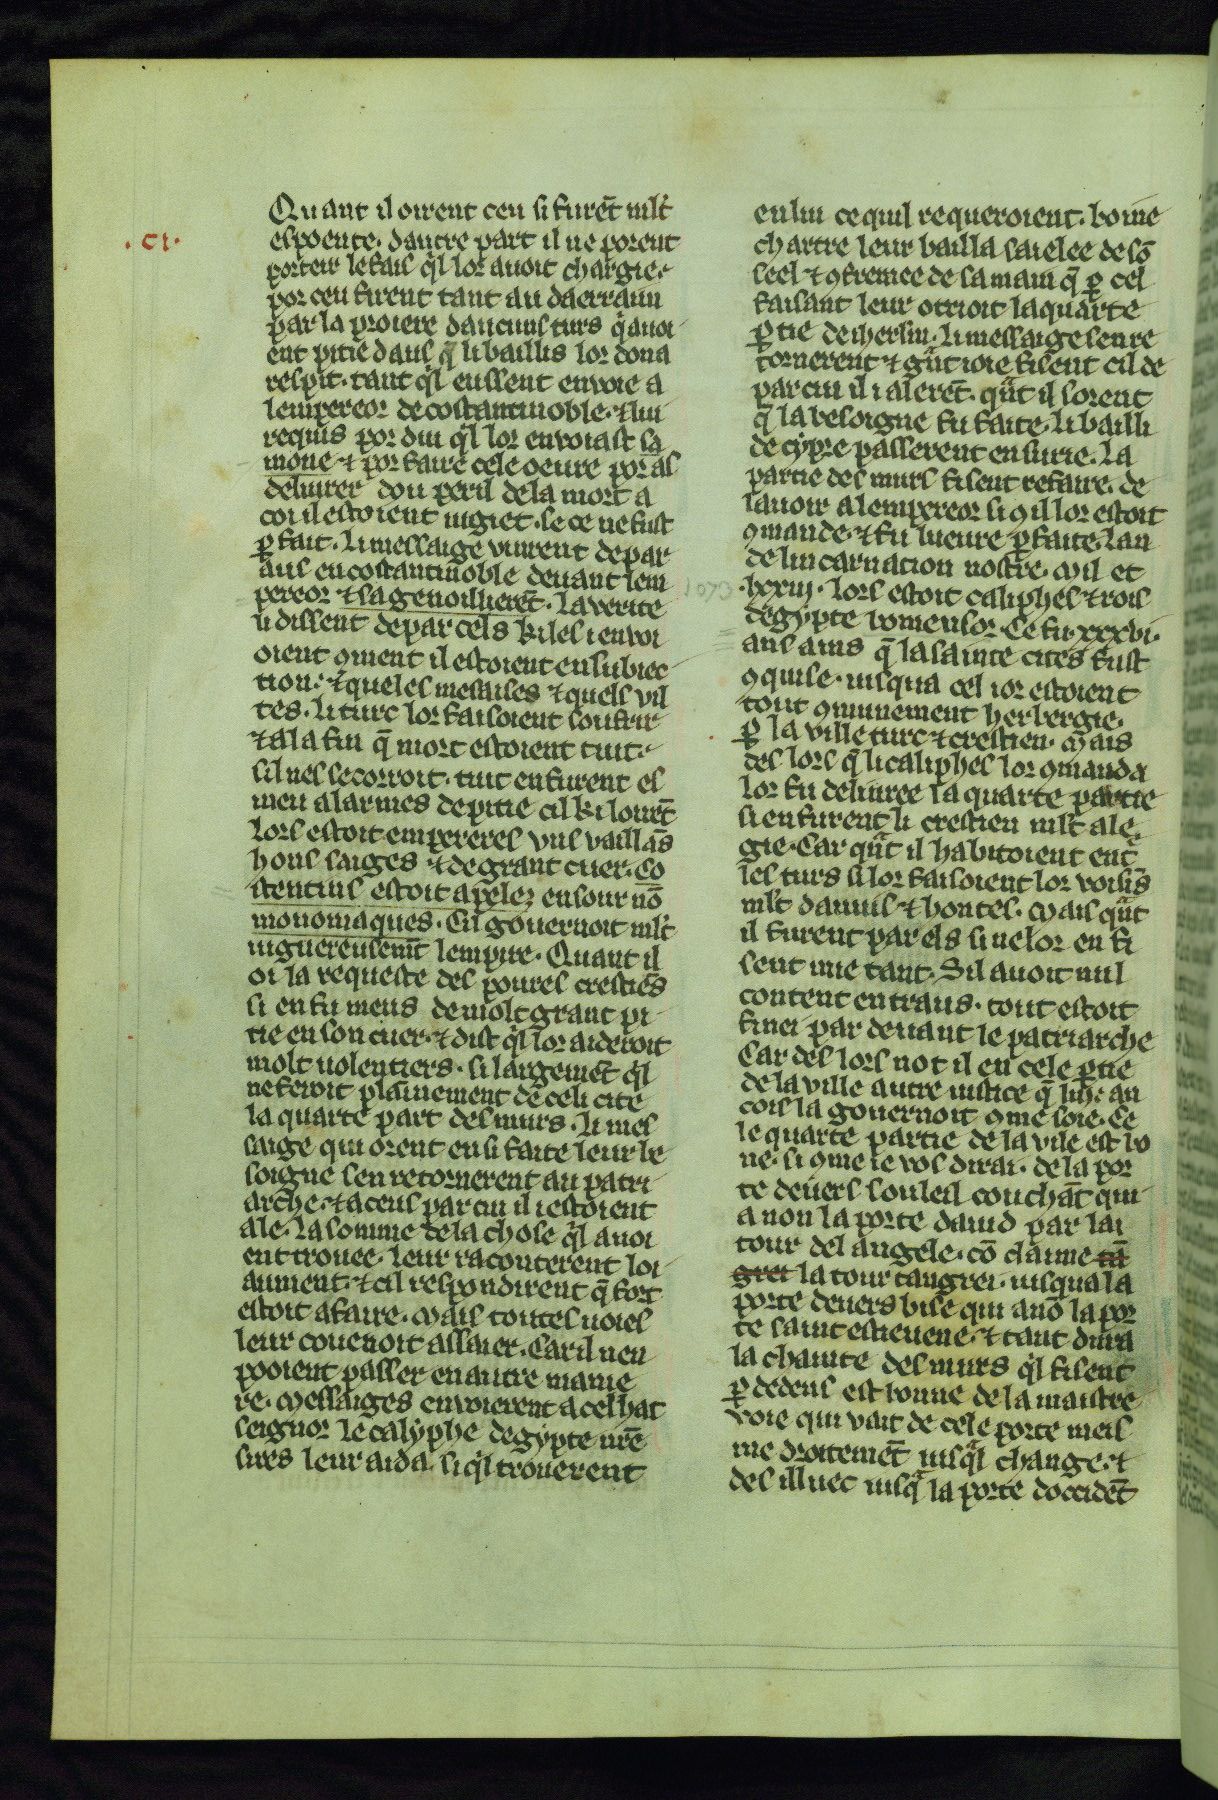 Quant il oirent ceu si furēt mlt
.CI.
espoente. dautre part il ne porent
porteir le fais ql lor auoit chargie.
por ceu firent tant au daerrain
par la proiere daucuns turs q auoi
ent pitie daus q li baillis lor dona
respit. tant ql eussent enuoie a
lempereor de costantinoble. & lui
requis por diu ql lor enuoiast sa
mone & por faire cele oeure por als
deliurer dou peril de la mort a
coi il estoient iugiet. se ce ne fust
p fait. li messaige vinrent de par
aus en costantinoble deuant lem
pereor & sagenoillierēt. la verite
li dissent de par cels ki les i enuoi
oient 9ment il estoient en subiec
tion. & queles mesaises & quels vil
tes. li turc lor faisoient soufrir
& a la fin q̄ mort estoient tuit.
sil nes secorroit. tuit en furent es
meu a larmes de pitie cil ki lourēt
lors estoit empereres vns vaillās
hons saiges & de grant cuer. Co
stentins estoit apelez en sour nō
monomaques. Cil gouernoit mlt
uiguereusemt lempire. Quant il
oi la requeste des poures crestiēs
si en fu meus de molt grant pi
tie en son cuer. & dist ql lor aideroit
molt uolentiers. si largemēt ql
ne feroit plainnement de celi cite
la quarte part des murs. li mes
saige qui orent ensi faite leur be
soigne sen retornerent au patri
arche. & a ceus par cui il i estoient
ale. la somme de la chose ql auoi
ent trouee. leur raconterent loi
aument. & cil respondirent q̄ fort
estoit a faire. Mais toutes uoies
leur couenoit assaier. Car il nen
pooient passer en autre manie
re. Messaiges enuoierent a cel hat
seignor le calyphe degypte nrē
sires leur aida si ql trouerent
en lui ce quil requeroient. bonne
chartre leur bailla saielee de sō
seel & 9fremee de sa main q̄ p cel
faisant leur otrioit la quarte
ptie de iherlm. li messaige senre
tornerent & gnt ioie fisent cil de
par cui il i alerēt. qnt il sorent
q̄ la besoigne fu faite. li bailli
de cypre passerent en surie. la
partie des murs fisent refaire. de
lauoir a lempereor si 9 il lor estoit
9mande. & fu lueure pfaite. lan
de lincarnation nostre. Mil et
1073
.lxxiij. lors estoit caliphes & rois
degypte bomensor. Ce fu .xxxvi.
ans ains q̄ la sainte cites fust
9quise. iusqua cel ior estoient
tout 9munement herbergie.
p la ville turc & crestien. Mais
des lors q̄ li caliphes lor 9manda
lor fu deliuree la quarte partie
si en furent li crestien mlt ale
gie. Car qnt il habitoient ent
les turs si lor faisoient lor voisīs
mlt danuis & hontes. Mais qnt
il furent par els si ne lor en fi
sent mie tant. Sil auoit nul
content entraus. tout estoit
finei par deuant le patriarche
Car des lors not il en cele ptie
de la ville autre iustice q̄ lui. an
cois la gouernoit 9me soie. Ce
le quarte partie de la vile est bo
ne. si 9me ie vos dirai. de la por
te deuers souleil couchāt qui
a non la porte dauid par lai
tour del angele. cō claime tā
grei la tour tangrei. iusqua la
porte deuers bise qui a nō la por
te saint estieuene. & tant dura
la chainte des murs ql fisent
p dedens est bonne de la maistre
voie qui vait de cele porte meis
me droitemēt iusql change. &
des illuec iusq la porte doccidēt